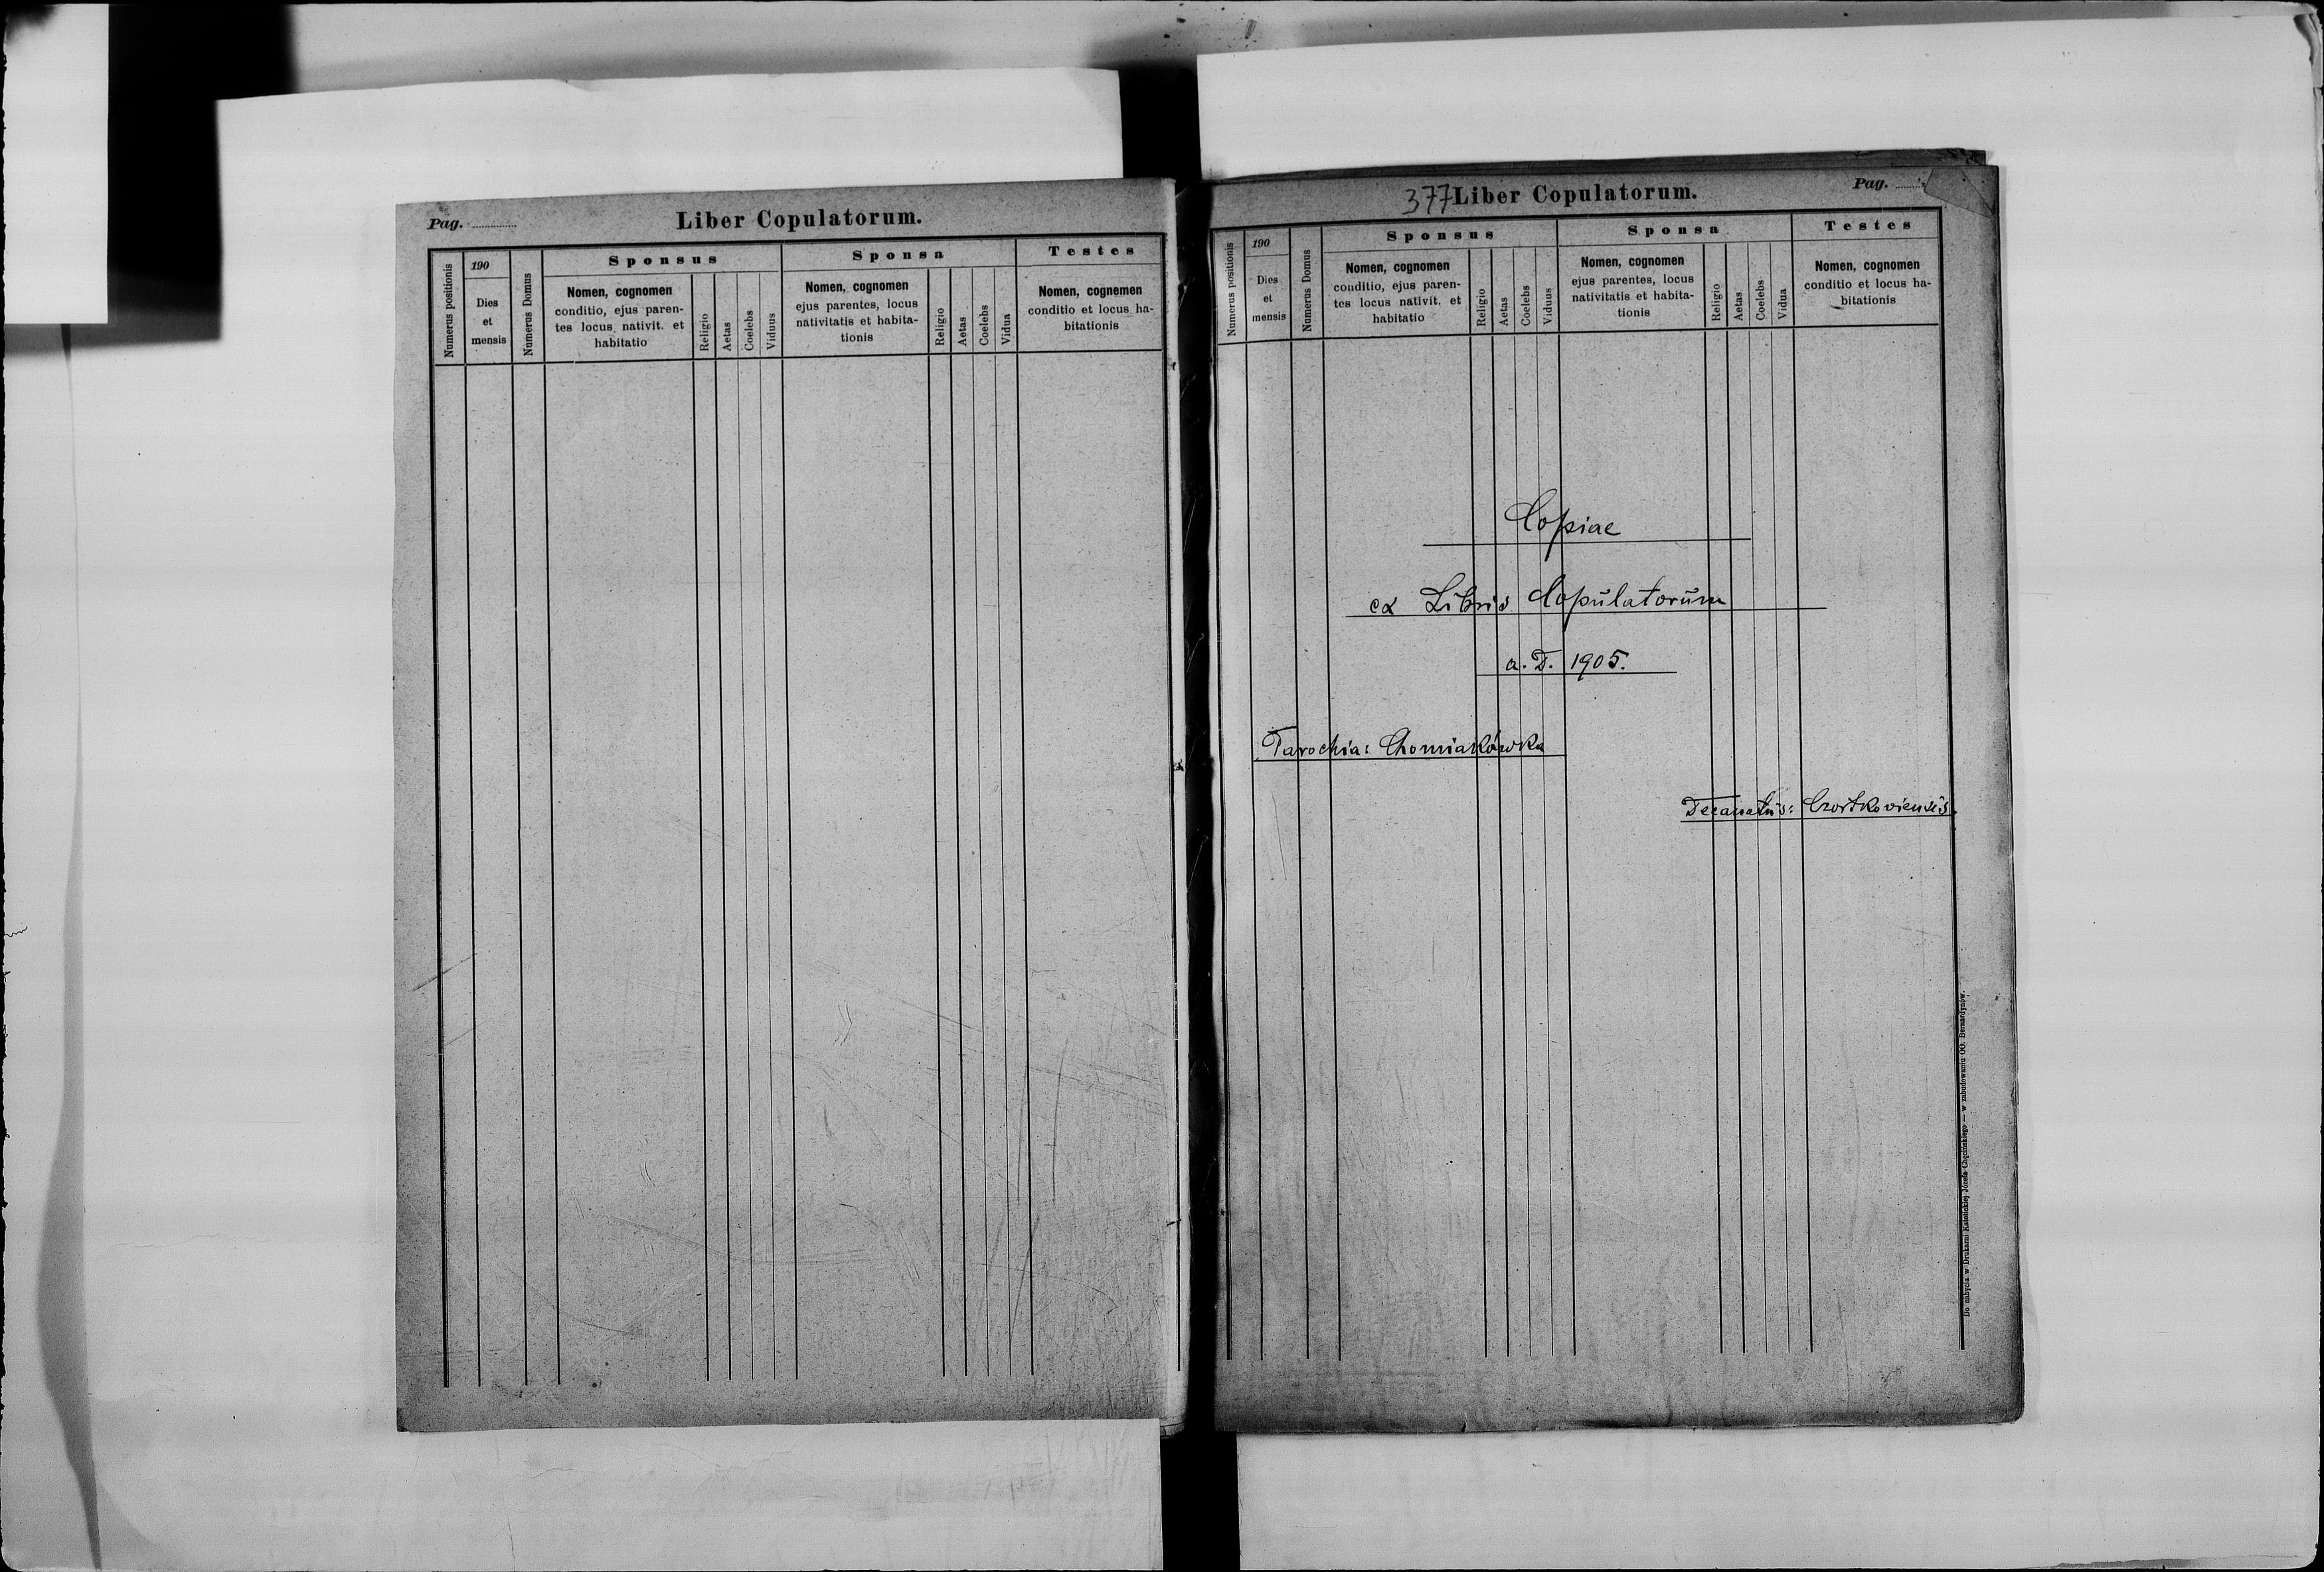 Pag.
Liber Copulatorum.
Numerus positionis
190
Dies
et
mensis
Numerus Domus
Sponsus
Nomen, cognomen
conditio, ejus paren-
tes locus nativit. et
habitatio
Religio
Aetas
Coelebs
Viduus
Sponsa
Nomen, cognomen
ejus parentes, locus
nativitatis et habita-
tionis
Religio
Aetas
Coelebs
Vidua
Testes
Nomen, cognemen
conditio et locus ha-
bitationis
377
Liber Copulatorum.
Pag.
Numerus positionis
190
Dies
et
mensis
Numerus Domus
Sponsus
Nomen, cognomen
conditio, ejus paren-
tes locus nativit. et
habitatio
Religio
Aetas
Coelebs
Viduus
Sponsa
Nomen, cognomen
ejus parentes, locus
nativitatis et habita-
tionis
Religio
Aetas
Coelebs
Vidua
Testes
Nomen, cognomen
conditio et locus ha-
bitationis
Copiae
ex Libris Copulatorum
a. D. 1905.
Parochia: Chomiakówka
Decanatus: Czortkoviensis.
Do nabycia w Drukarni Katolickiej Józefa Chęcińskiego — w zabudowaniu OO. Bernardynów.